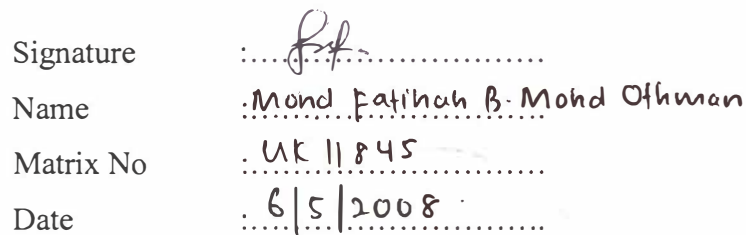 Signature :
Name : Mohd Fatihah B. Mohd Othman
Matrix No : UK 11845
Date : 6/5/2008